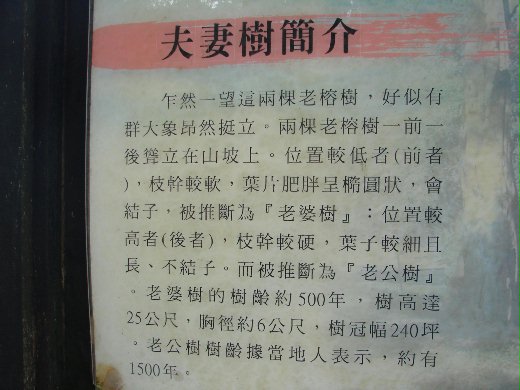 夫妻樹簡介
乍然一望這兩棵老榕樹，好似有
群大象昂然挺立。兩棵老榕樹一前一
後聳立在山坡上。位置較低者(前者
)，枝幹較軟，葉片肥胖呈橢圓狀，會
結子，被推斷為『老婆樹』：位置較
高者(後者)，枝幹較硬，葉子較細且
長、不結子。而被推斷為『老公樹』
。老婆樹的樹齡約500年，樹高達
25公尺，胸徑約6公尺，樹冠幅240坪
。老公樹樹齡據當地人表示，約有
1500年。